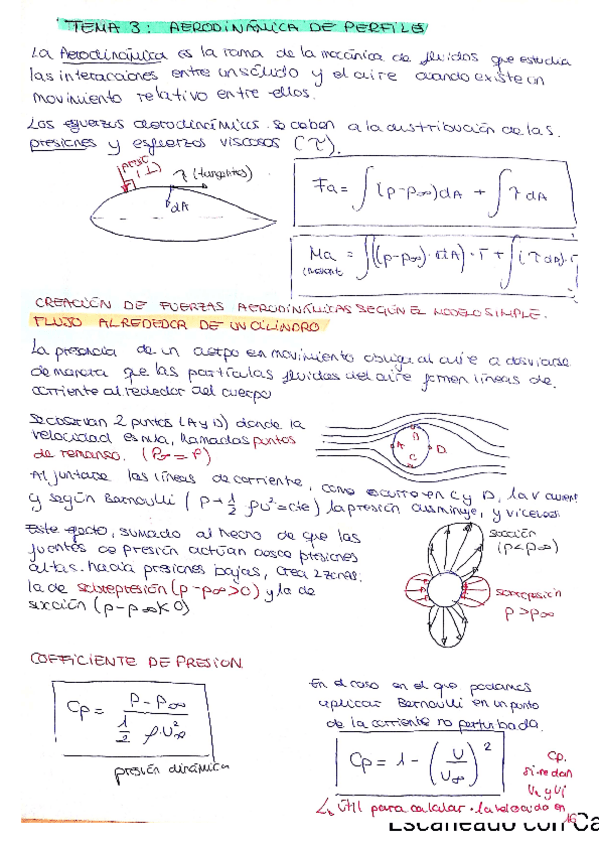 TEMA 3: AERODINÁMICA DE PERFILES
La Aerodinámica es la rama de la mecánica de fluidos que estudia
las interacciones entre un sólido y el aire cuando existe un
movimiento relativo entre ellos.
Los esfuerzos aerodinámicos se deben a la distribución de las
presiones y esfuerzos viscosos (τ).
(⊥)
τ (tangentes)
dA
Fa = ∫(p-p∞)dA + ∫τ dA
Ma = ∫((p-p∞)·dA)·r + ∫(τ dA)·r
CREACIÓN DE FUERZAS AERODINÁMICAS SEGÚN EL MODELO SIMPLE.
FLUJO ALREDEDOR DE UN CILINDRO
La presencia de un cuerpo en movimiento obliga al aire a desviarse
de manera que las partículas fluidas del aire formen líneas de
corriente alrededor del cuerpo
Se observan 2 puntos (A y D) donde la
velocidad es nula, llamados puntos
de remanso.
A
B
C
D
Al juntarse las líneas de corriente, como ocurre en C y D, la v
y según Bernoulli (P+1/2 ρU²=cte) la presión disminuye, y viceversa
Este efecto, sumado al hecho de que las
fuentes de presión actúan desde presiones
altas hacia presiones bajas, crea 2 zonas:
la de sobrepresión (p-p∞>0) y la de
succión (p-p∞<0)
succión
(p<p∞)
sobrepresión
p>p∞
COEFICIENTE DE PRESION
Cp = (P-P∞) / (1/2 ρ·U∞²)
presión dinámica
En el caso en el que podamos
aplicar Bernoulli en un punto
de la corriente no perturbada.
Cp = 1-(U/U∞)²
Cp.
si te dan
útil para calcular la velocidad en
16
Escaneado con Ca